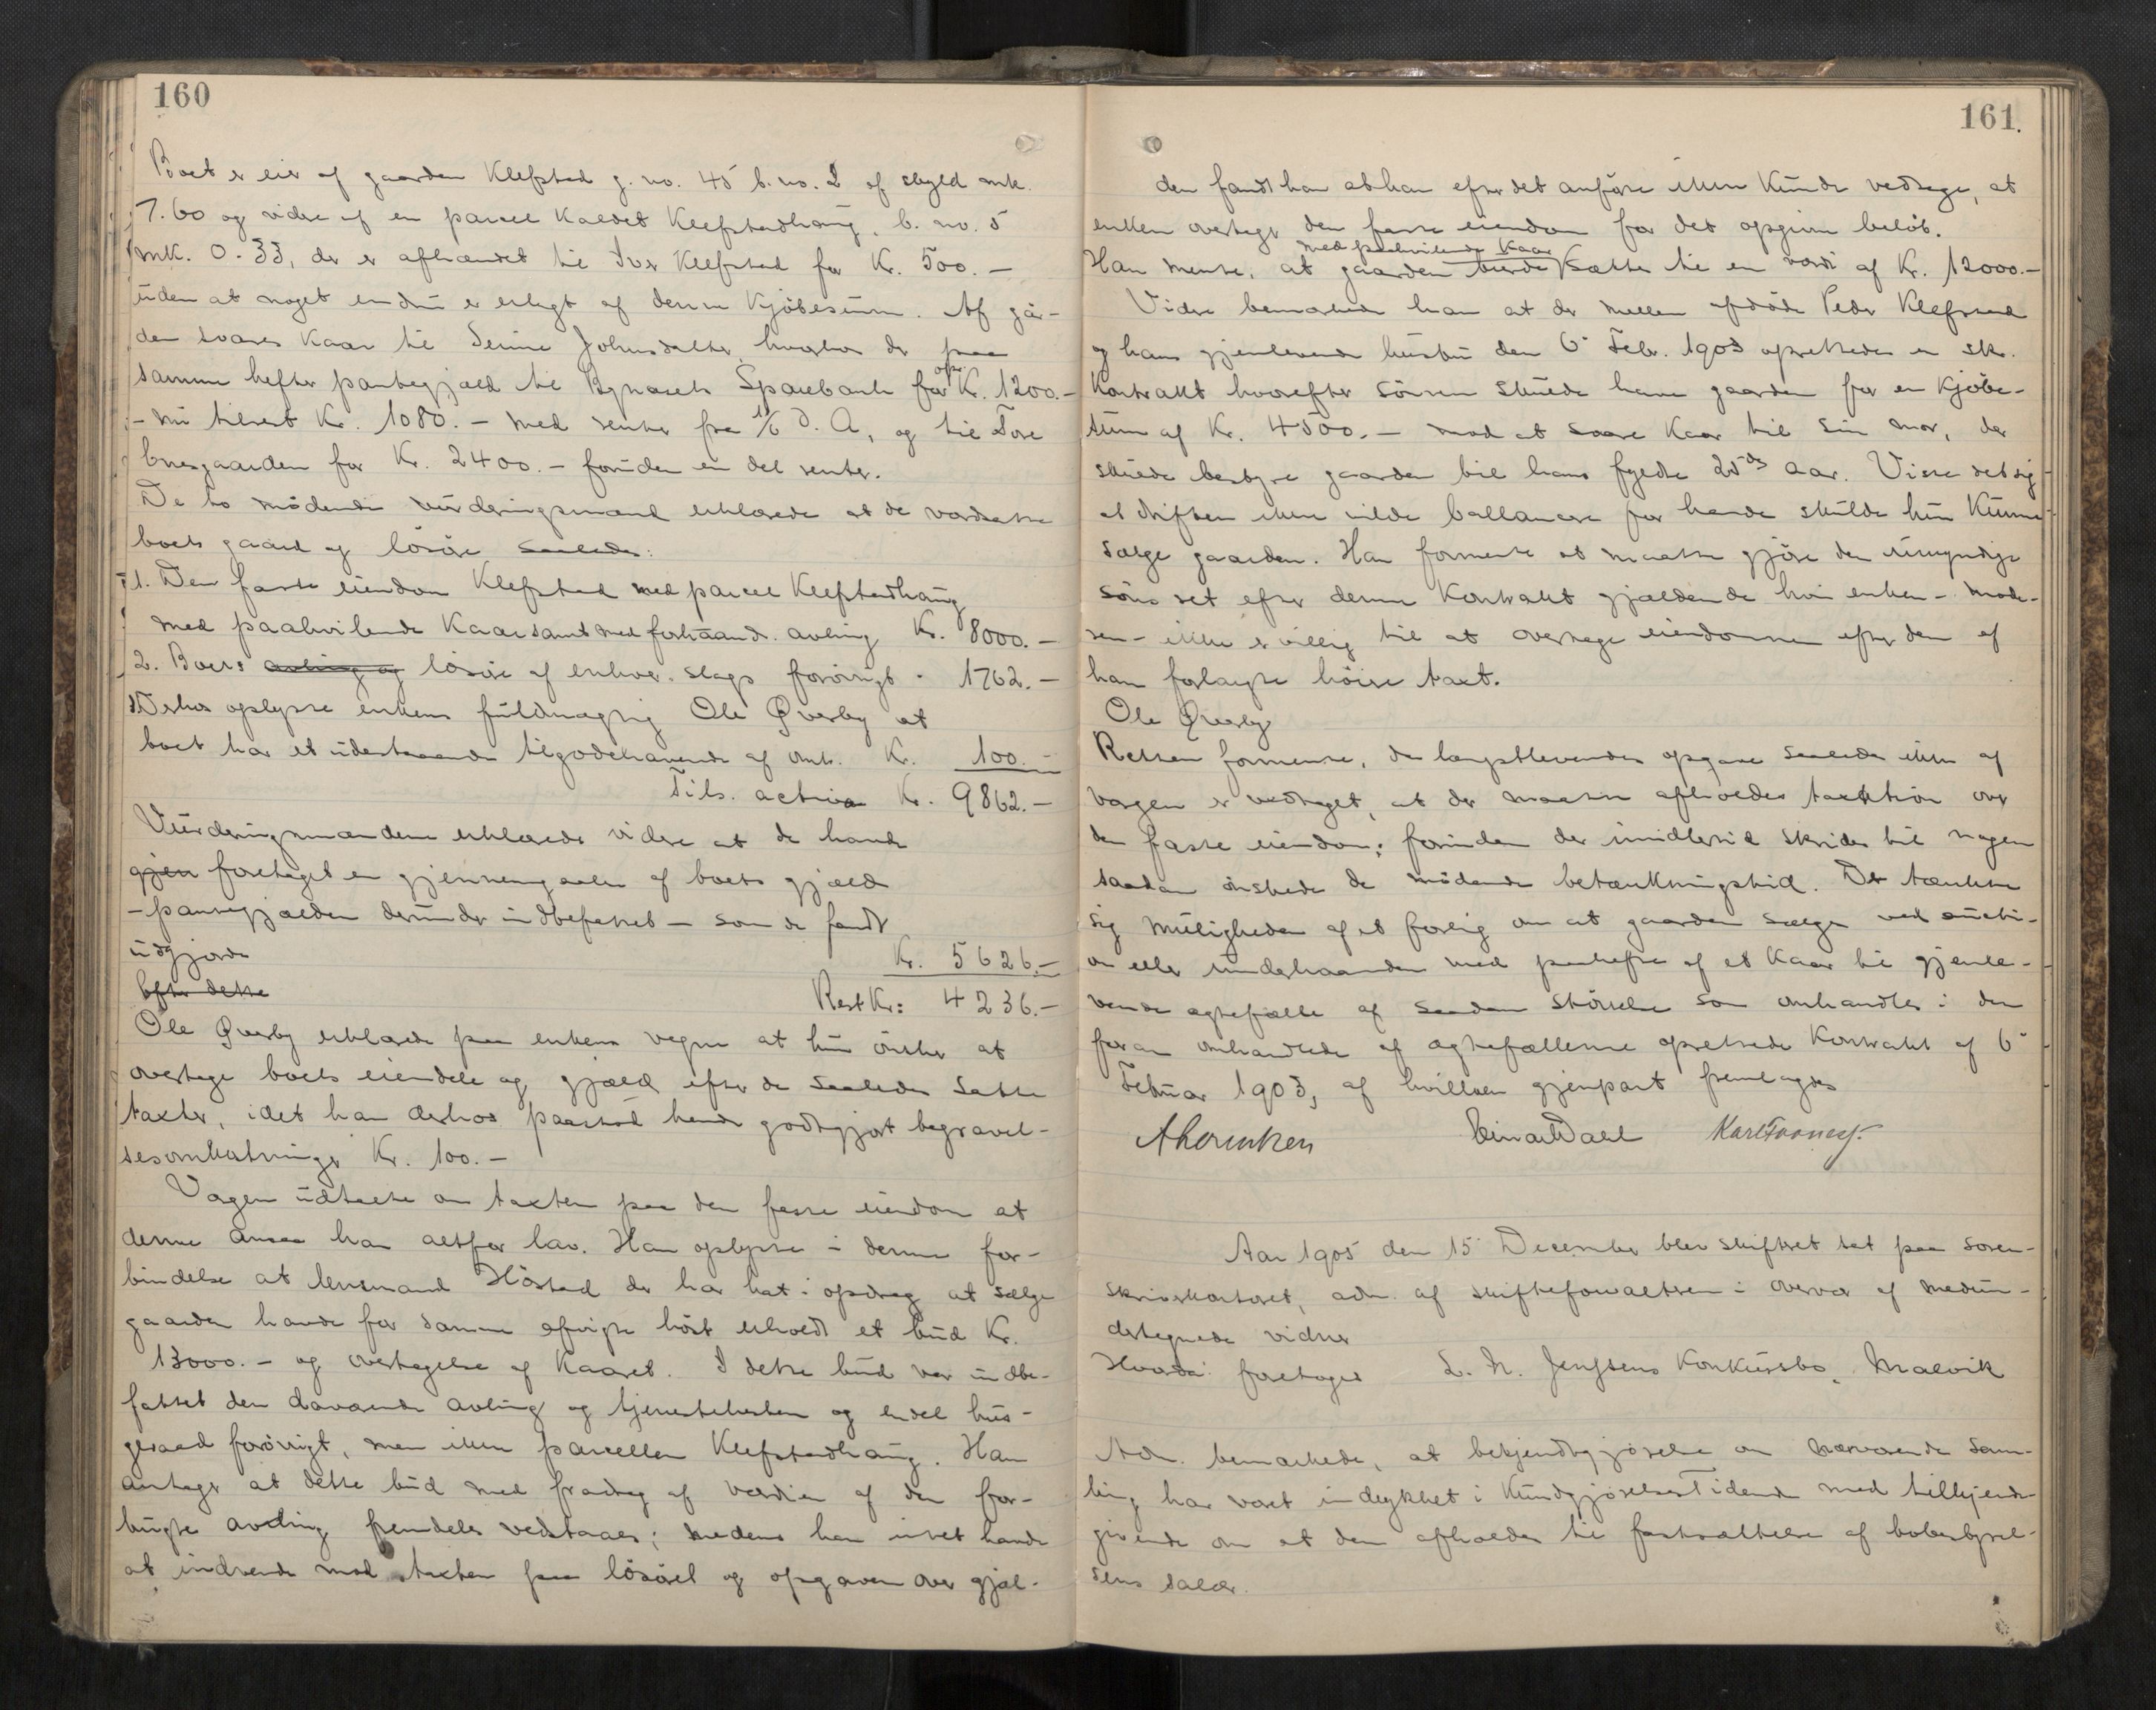 160
Boet er eier af gaarden Klefstad g. no. 45 b. no. 2 af skyld mk.
7.60 og videre af en parcel kaldet Klefstadhaug, b. no. 5
mk. 0.33, der er afhændet til Iver Klefstad for Kr. 500.-
uden at noget endnu er erlagt af denne kjøbesum. Af gaar-
den svares kaar til Johnsdatter, hvorhos der paa
samme hefter pantegjæld til Bynesets Sparebank for opr. Kr. 1200.-
- nu tilrest Kr. 1080.- med renter fra 1/6 d. A, og til Tore
bnesgaarden for Kr. 2400.- foruden en del renter.
De to mødende vurderingsmænd erklærede at de værdsatte
boets gaard og løsøre saaledes:
1. Den faste eiendom Klefstad med parcel Klefstadhaug
med paahvilende kaar samt med forhaand. avling Kr. 8000.-
2. Boets avling og løsøre af enhver slags forøvrigt - 1762.-
Derhos oplyste enkens fuldmægtig Ole Øverby at
boet har et udestaaende tilgodehavende af omtr. Kr. 100.-
Tils. activa Kr. 9862.-
Vurderingsmændene erklærede videre at de havde
gjen foretaget en gjennemgaaelse af boets gjæld
- pantegjælden derunder indbefattet - som de fandt
udgjorde Kr. 5626.-
Efter dette Rest Kr: 4236.-
Ole Øverby erklærede paa enkens vegne at hun ønsker at
overtage boets eiendele og gjæld efter de saaledes satte
taxter, idet han derhos paastod hende godtgjort begravel-
sesomkostninger Kr. 100.-
Vergen udtalte om taxten paa den faste eiendom at
denne ansaa han altfor lav. Han oplyste i denne for-
bindelse at lensmand Høstad der har hat i opdrag at sælge
gaarden havde for samme afvigte høst erholdt et bud Kr.
13000.- og overtagelse af kaaret. I dette bud var indbe-
fattet den daværende avling og tjenestehesten og endel hus-
geraad forøvrigt, men ikke parcellen Klefstadhaug. Han
antager at dette bud med fradrag af værdien af den for-
brugte avling fremdeles vedstaaes; medens han intet havde
at indvende mod taxten paa løsøret og opgaven over gjæl-
161.
den fandt han at han efter det anførte ikke kunde vedtage, at
enken overtager den faste eiendom for det opgivne beløb.
med paahvilende kaar
Han mente, at gaarden burde sættes til en værdi af Kr. 12000.-
Videre bemærkede han at der mellem afdøde Peder Klefstad
og hans gjenlevende hustru den 6te Febr. 1903 oprettedes en sk.
kontrakt hvorefter sønnen skulde have gaarden for en kjøbe-
sum af Kr. 4500.- mod at svare kaar til sin mor, der
skulde bestyre gaarden til hans fyldte 25de aar. Viste det sig
at driften ikke vilde ballancere for hende skulde hun kunne
sælge gaarden. Han formente at maatte gjøre den umyndige
søns ret efter denne kontrakt gjældende hvis enken - mode-
ren - ikke er villig til at overtage eiendommen efter den af
ham forlangte høiere taxt.
Ole Øverby
Retten formente, da længstlevendes opgave saaledes ikke af
vergen er vedtaget, at der maatte afholdes taxation over
den faste eiendom; forinden der imidlertid skrides til nogen
saadan ønskede de mødende betænkningstid. De tænkte
sig muligheden af et forlig om at gaarden sælges ved aucti-
on eller underhaanden med paahefte af et kaar til gjenle-
vende ægtefælle af saadan størrelse som omhandles i den
foran omhandlede af ægtefællerne oprettede kontrakt af 6te
Februar 1903, af hvilken gjenpart fremlagdes
Einar Dahl
Aar 1905 den 15 December blev skifteret sat paa soren-
skriverkontoret, adm. af skifteforvalteren i overvær af medun-
dertegnede vidner
Hvorda: foretoges L. N. Jenssens konkursbo, Malvik
Adm. bemærkede, at bekjendtgjørelse om nærværende sam-
ling har været indrykket i Kundgjørelsestidende med tilkjende-
givende om at den afholdes til fastsættelse af bobestyrel-
sens salær.